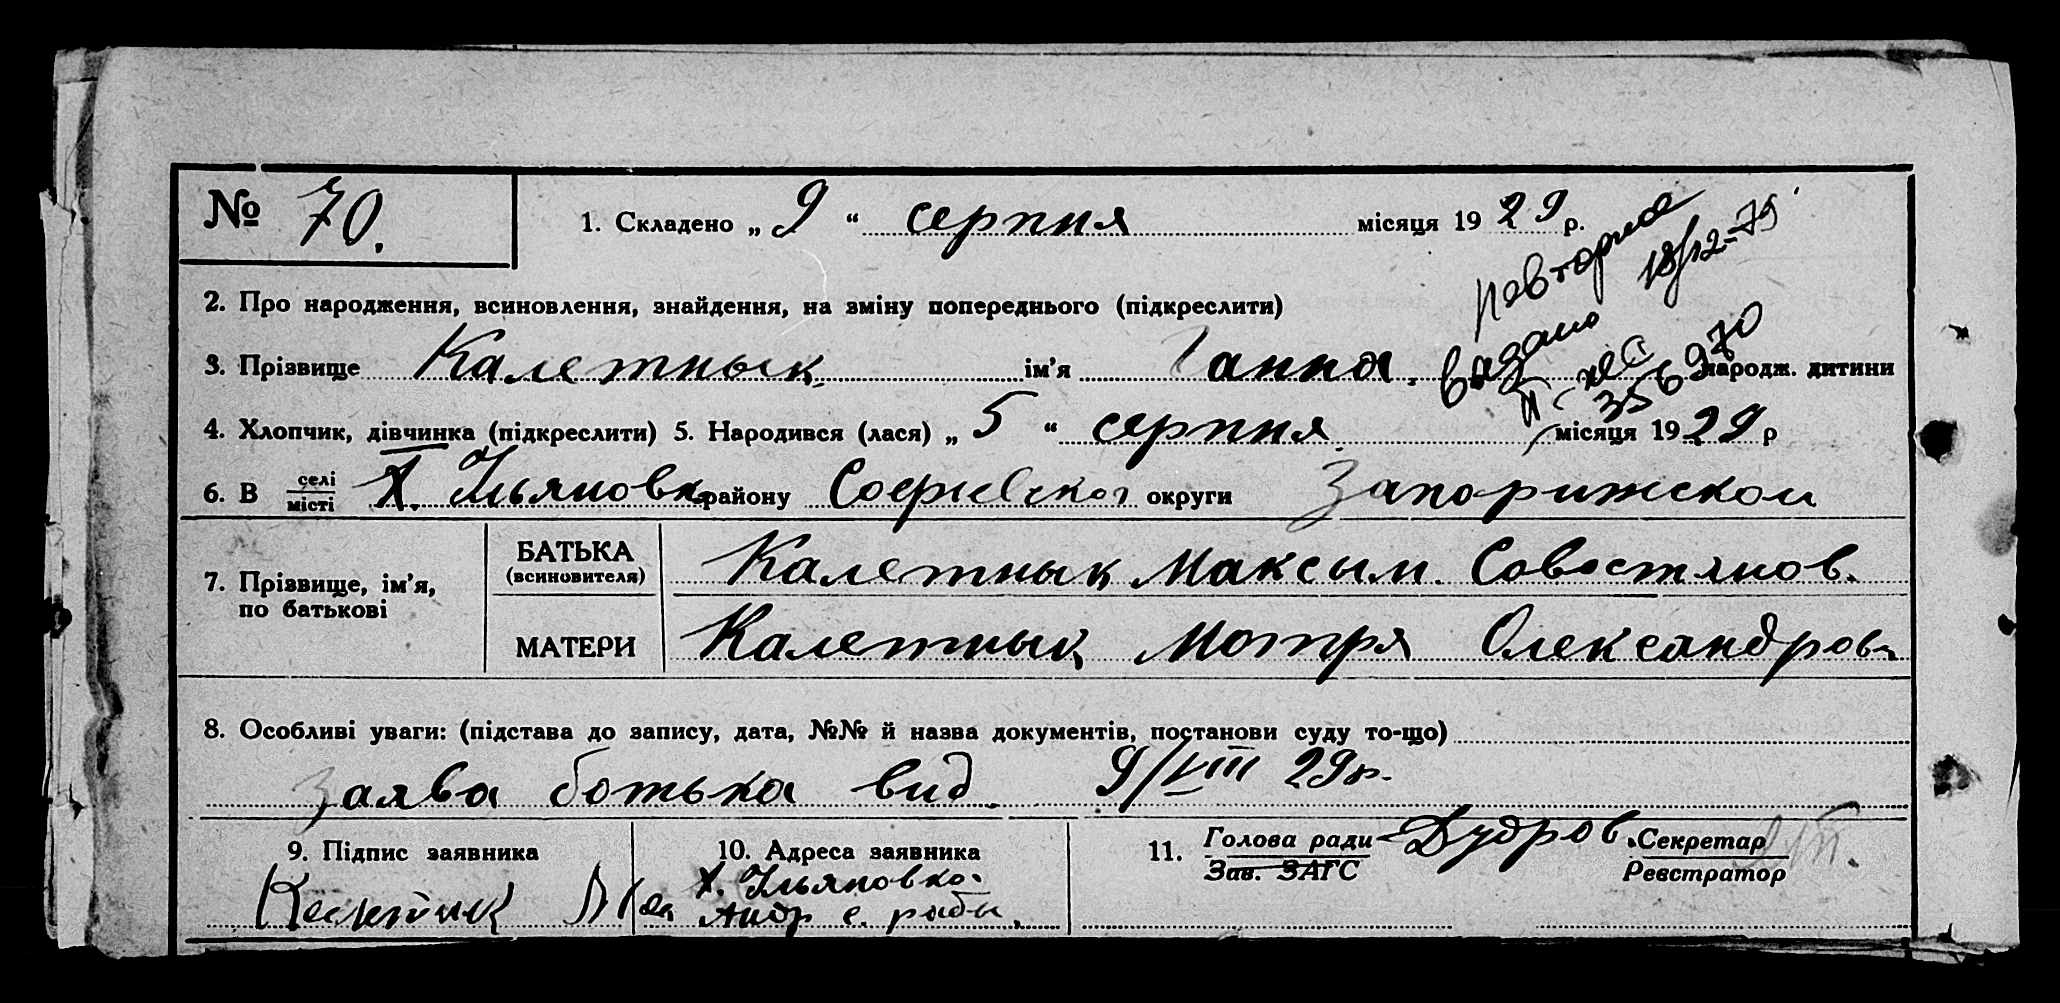 № 70.
1. Складено „ 9 “ серпня місяця 19 29 р.
повторное
видано 18/12-75
356970
2. Про народження, всиновлення, знайдення, на зміну попереднього (підкреслити)
3. Прізвище Калетнык ім’я Ганна. народж. дитини
4. Хлопчик, дівчинка (підкреслити) 5. Народився (лася) „ 5 “ серпня місяця 19 29 р
6. В селі місті Х. Ільяновка району Софиевской округи Запорижской
7. Прізвище, ім’я, по батькові
БАТЬКА (всиновителя) Калетнык Максым. Совостянов.
МАТЕРИ Калетнык Мотря Олександров
8. Особливі уваги: (підстава до запису, дата, №№ й назва документів, постанови суду то-що)
Заява ботька вид. 9/VIII 29р.
9. Підпис заявника
10. Адреса заявника
Х. Ільяновко.
Андр с. рады.
11. Голова ради Зав. ЗАГС Дудров. Секретар Реєстратор